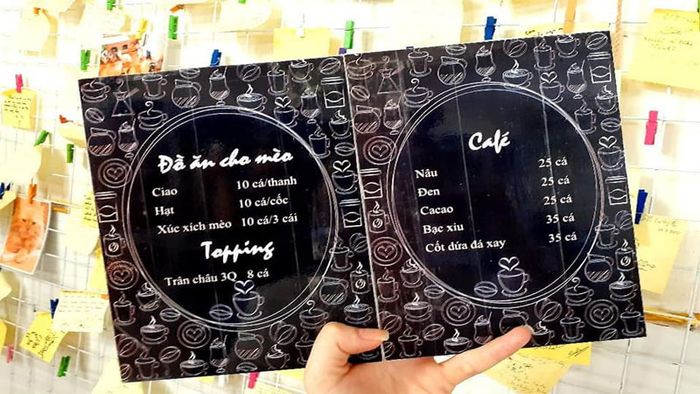 Đồ ăn cho mèo
Ciao 10 cá/thanh
Hạt 10 cá/cốc
Xúc xích mèo 10 cá/3 cái
Topping
Trân châu 3Q 8 cá
Café
Nâu 25 cá
Đen 25 cá
Cacao 25 cá
Bạc xỉu 35 cá
Cốt dừa đá xay 35 cá